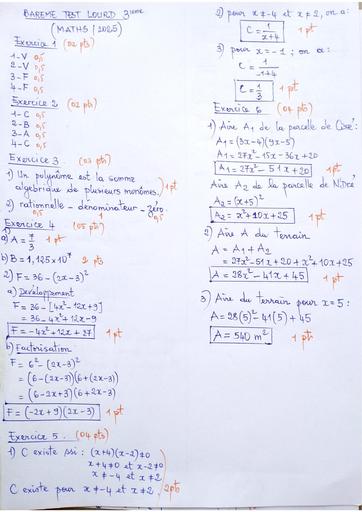 BAREME TEST LOURD 3ième
(MATHS | 2025)
Exercice 1 (02 pts)
1-V 0,5
2-V 0,5
3-F 0,5
4-F 0,5
Exercice 2 (02 pts)
1-C 0,5
2-B 0,5
3-A 0,5
4-C 0,5
Exercice 3 (03 pts)
1) Un polynôme est la somme
algébrique de plusieurs monômes. 1pt
2) rationnelle - dénominateur - zéro
0,5 1 0,5
Exercice 4 (05 pts)
1)
a) A = 7/3 1 pt
b) B = 1,125 × 10⁷ 2 pts
2) F = 36 - (2x-3)²
a) Développement
F = 36 - [4x² - 12x + 9]
= 36 - 4x² + 12x - 9
F = -4x² + 12x + 27 1 pt
b) Factorisation
F = 6² - (2x-3)²
= (6-(2x-3))(6+(2x-3))
= (6-2x+3)(6+2x-3)
F = (-2x+9)(2x+3) 1 pt
Exercice 5. (04 pts)
1) C existe ssi : (x+4)(x-2)≠0
x+4≠0 et x-2≠0
x≠-4 et x≠2
C existe pour x≠-4 et x≠2. 2pts
2) pour x≠-4 et x≠2, on a :
C = 1/(x+4) 1 pt
3) pour x = -1 ; on a :
C = 1/(-1+4)
C = 1/3 1 pt
Exercice 6 (04 pts)
1) Aire A₁ de la parcelle de
A₁ = (3x-4)(9x-5)
A₁ = 27x² - 15x - 36x + 20
A₁ = 27x² - 51x + 20 1 pt
Aire A₂ de la parcelle de
A₂ = (x+5)²
A₂ = x² + 10x + 25 1 pt
2) Aire A du terrain
A = A₁ + A₂
= 27x² - 51x + 20 + x² + 10x + 25
A = 28x² - 41x + 45 1 pt
3) Aire du terrain pour x = 5 :
A = 28(5)² - 41(5) + 45
A = 540 m² 1 pt